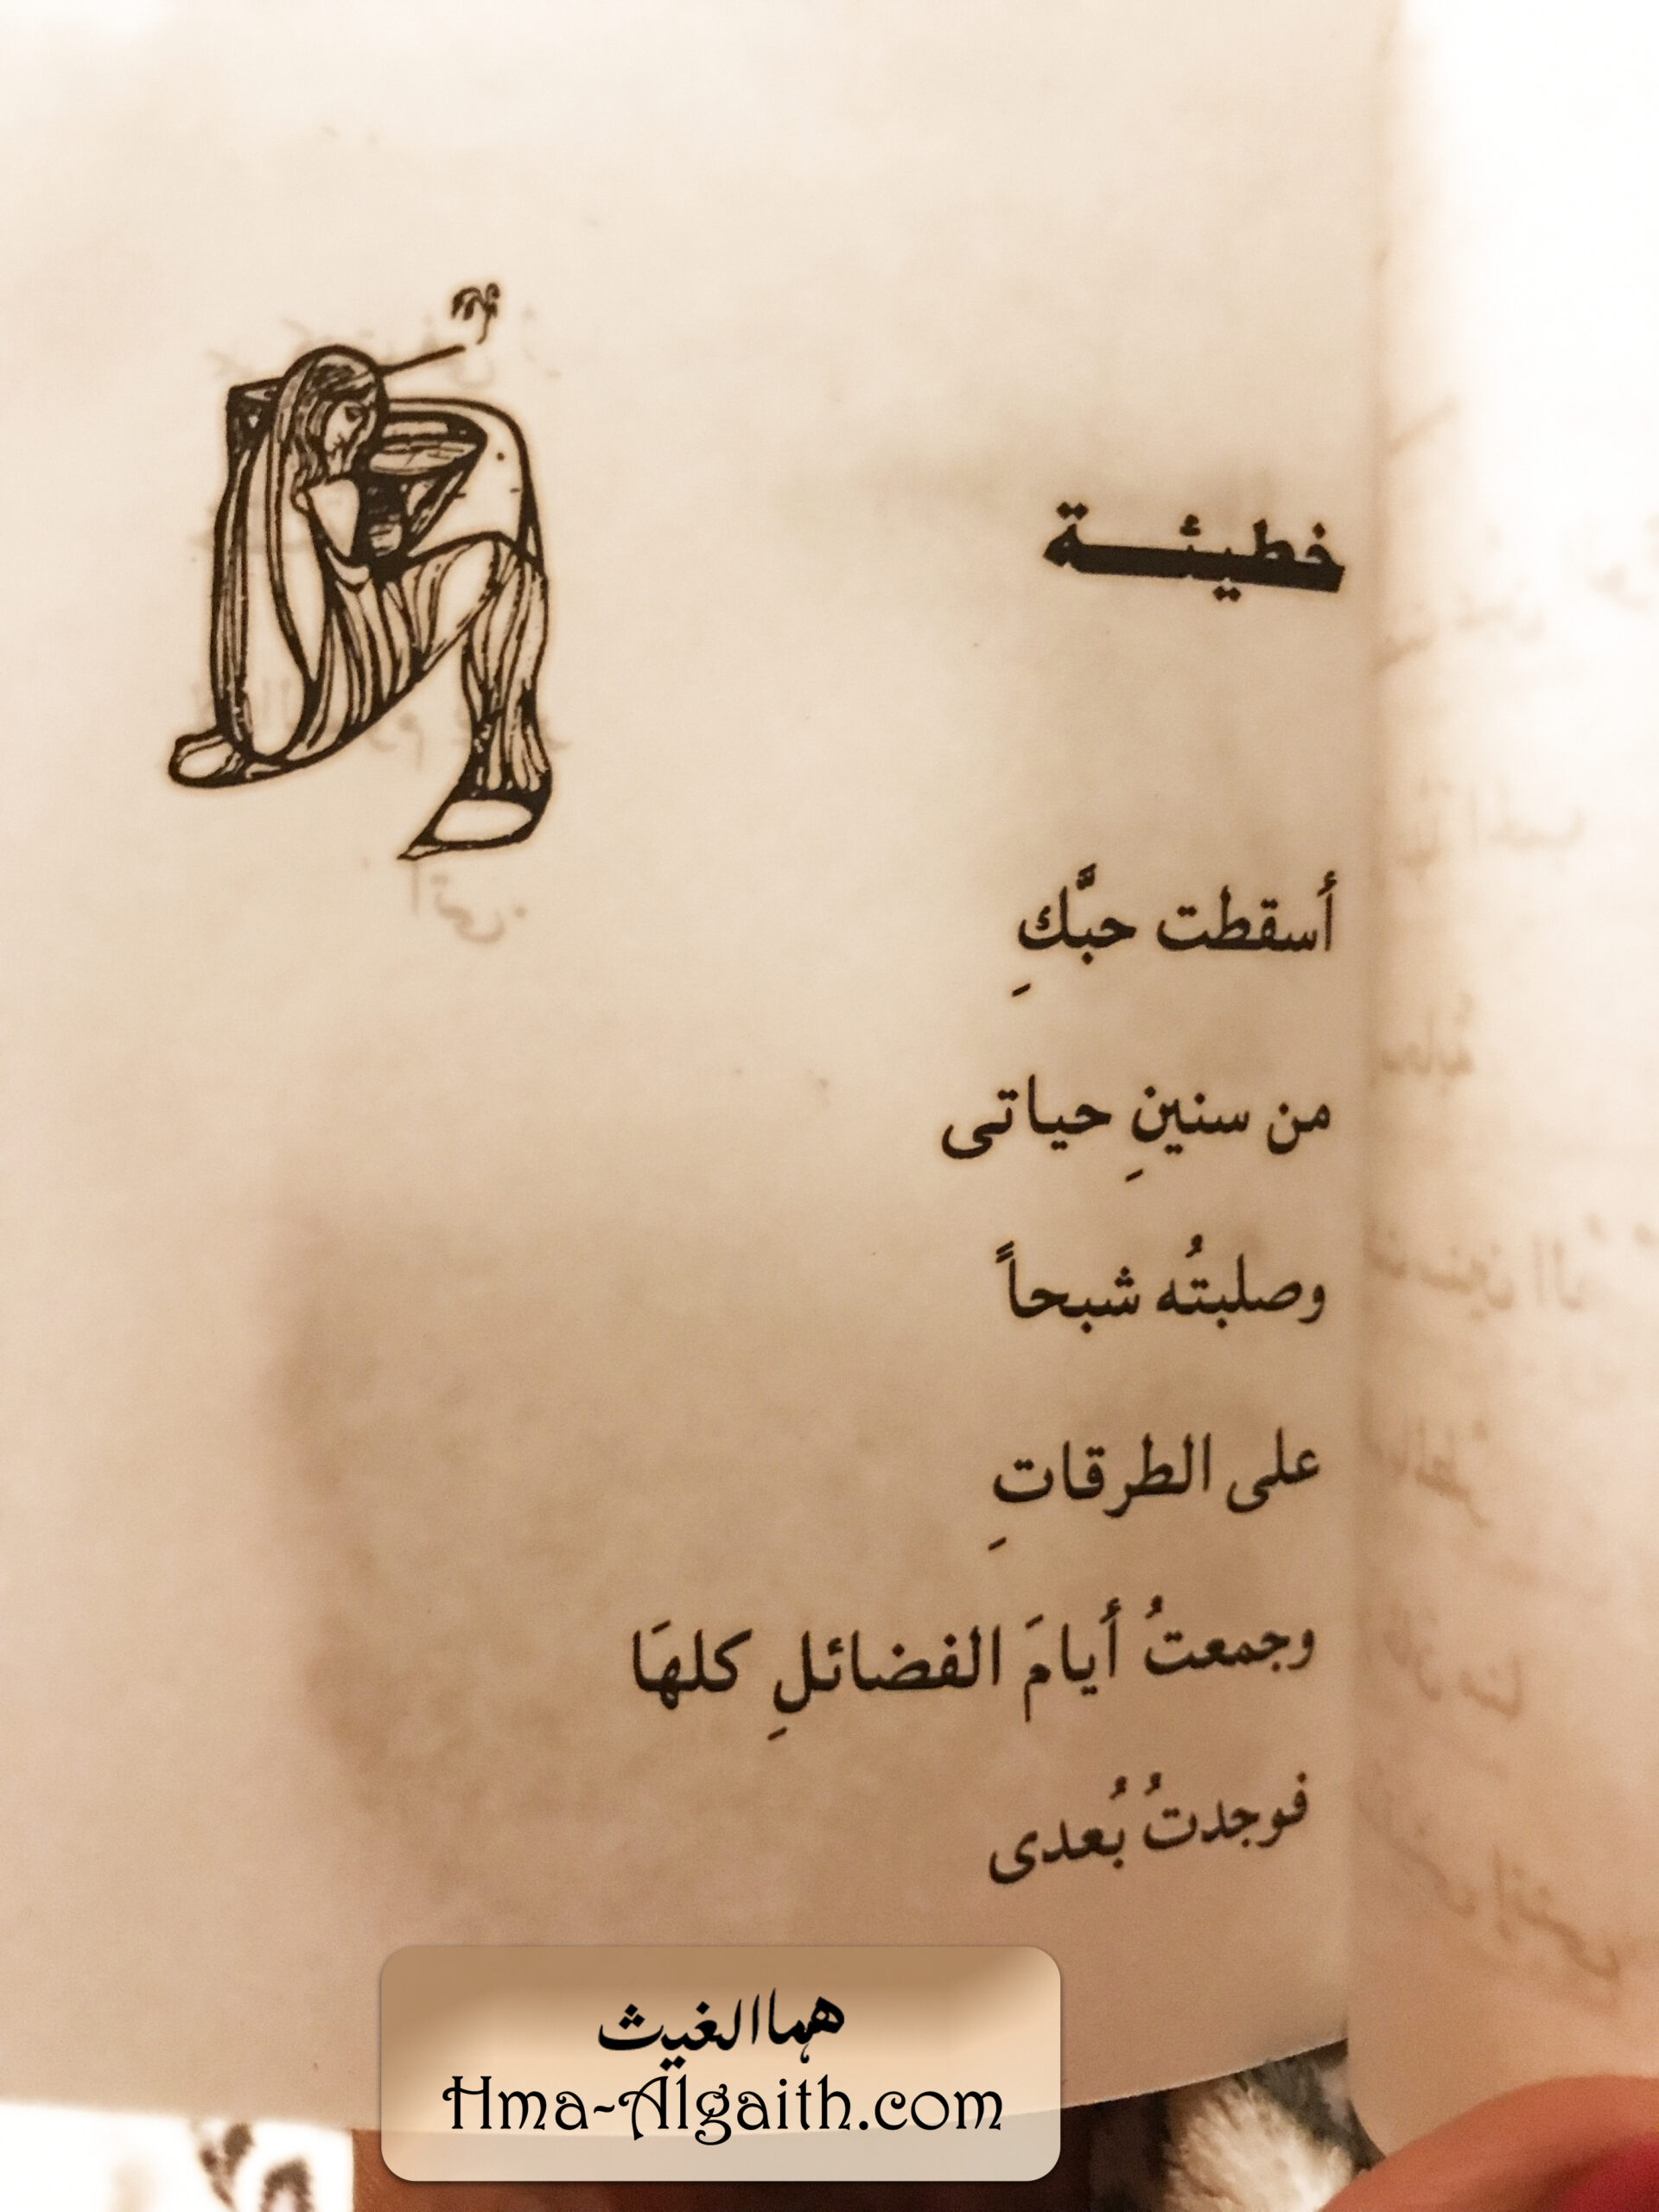 خطيئـــة
أسقطت حبَّكِ
من سنينِ حياتى
وصلبتُه شبحاً
على الطرقاتِ
وجمعتُ أيامَ الفضائلِ كلهَا
فوجدتُ بُعدى
هماالغيث
Hma-Algaith.com